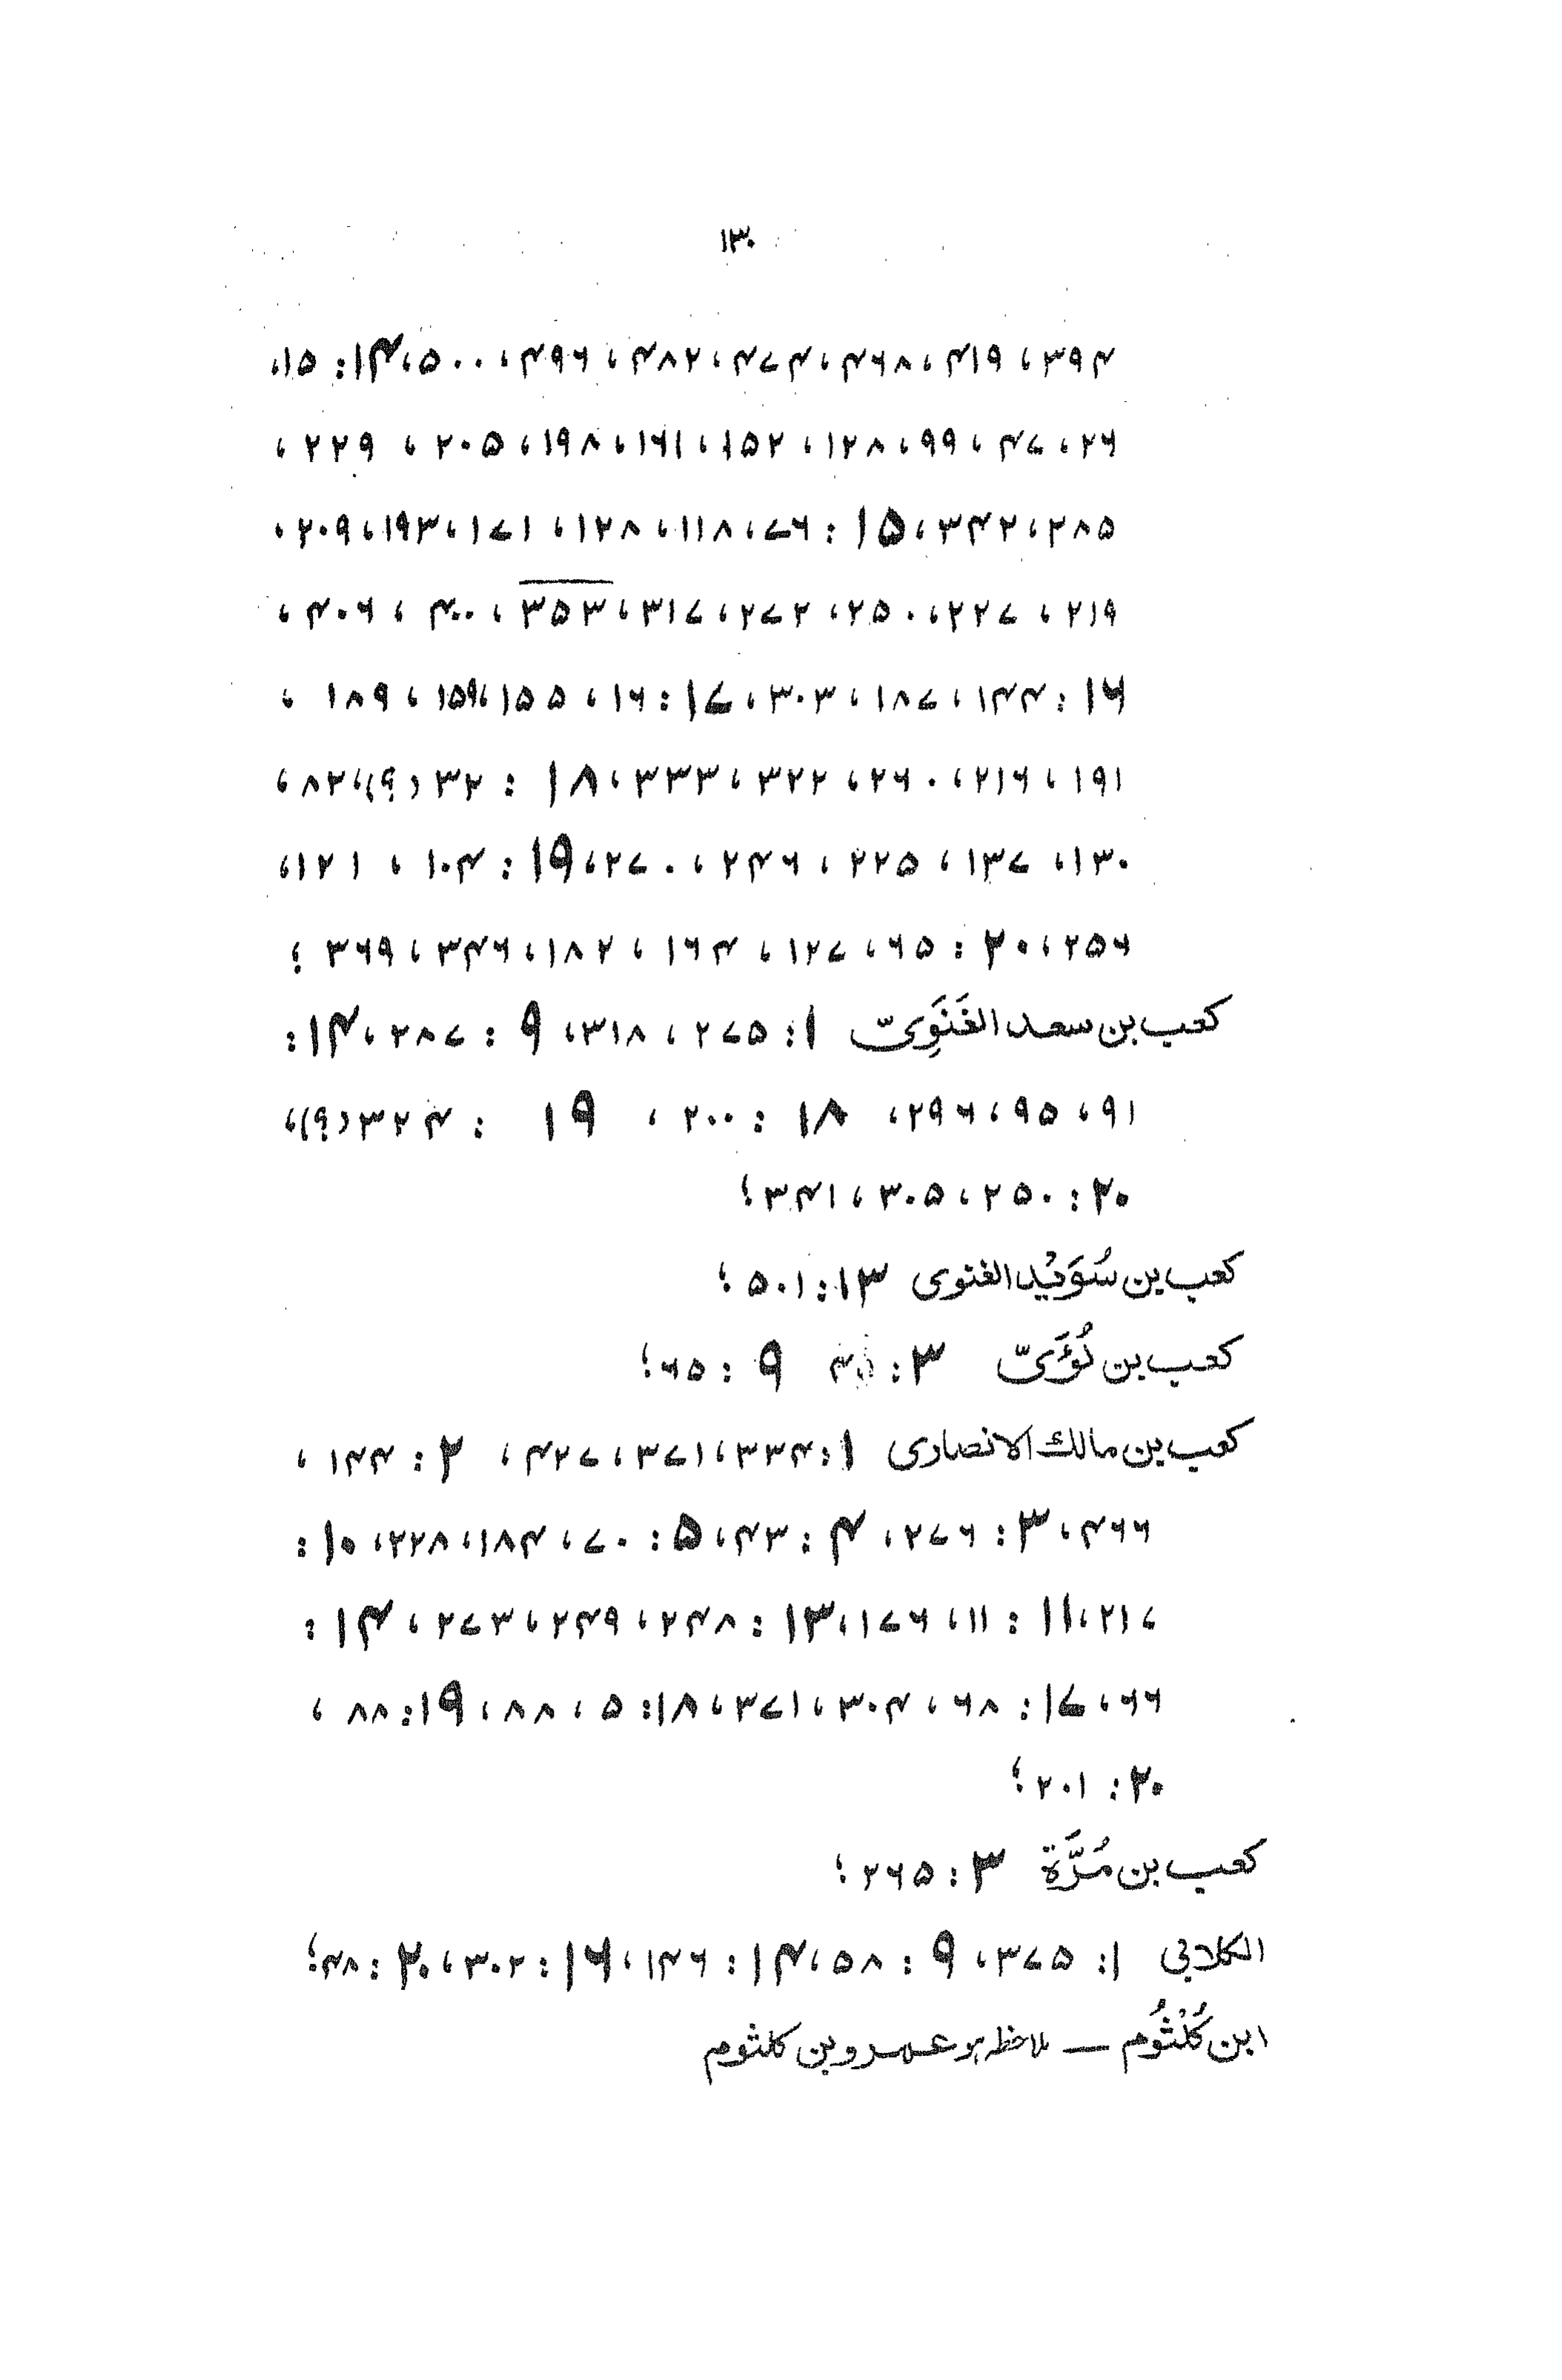 ۱۳۰
۳۹۴، ۴۱۹، ۴۶۸، ۴۷۴، ۴۸۲، ۴۹۶، ۵۰۰، ۱۴: ۱۵،
۲۶، ۴۷، ۹۹، ۱۲۸، ۱۵۲، ۱۶۱، ۱۹۸، ۲۰۵، ۲۲۹،
۲۸۵، ۳۴۲، ۱۵: ۷۶، ۱۱۸، ۱۲۸، ۱۷۱، ۱۹۳، ۲۰۹،
۲۱۹، ۲۲۷، ۲۵۰، ۲۷۲، ۳۱۷، ۳۵۳، ۴۰۰، ۴۰۶،
۱۶: ۱۴۴، ۱۸۷، ۳۰۳، ۱۷: ۱۶، ۱۵۵، ۱۵۹، ۱۸۹،
۱۹۱، ۲۱۶، ۲۶۰، ۳۲۲، ۳۳۳، ۱۸: ۳۲ (؟)، ۸۲،
۱۳۰، ۱۳۷، ۲۲۵، ۲۴۶، ۲۷۰، ۱۹: ۱۰۴، ۱۲۱،
۲۵۶، ۲۰: ۶۵، ۱۲۷، ۱۶۴، ۱۸۲، ۳۴۶، ۳۶۹؛
کعب بن سعد الغَنَوِیّ ۱: ۲۷۵، ۳۱۸، ۹: ۲۸۷، ۱۴:
۹۱، ۹۵، ۲۹۶، ۱۸: ۲۰۰، ۱۹: ۳۲۴ (؟)،
۲۰: ۲۵۰، ۳۰۵، ۳۴۱؛
کعب بن سُوَیْد الغنوی ۱۳: ۵۰۱؛
کعب بن لُؤَیّ ۳: ۹: ۶۵؛
کعب بن مالك الانصاری ۱: ۳۳۴، ۳۷۱، ۴۲۷، ۲: ۱۴۴،
۴۶۶، ۳: ۲۷۶، ۴: ۴۳، ۵: ۷۰، ۱۸۴، ۲۲۸، ۱۰:
۲۱۷، ۱۱: ۱۱، ۱۷۶، ۱۳: ۲۴۸، ۲۴۹، ۲۷۳، ۱۴:
۶۶، ۱۷: ۶۸، ۳۰۴، ۳۷۱، ۱۸: ۵، ۸۸، ۱۹: ۸۸،
۲۰: ۲۰۱؛
کعب بن مُرَّة ۳: ۲۶۵؛
الکلابی ۱: ۳۷۵، ۹: ۵۸، ۱۴: ۱۴۶، ۱۶: ۳۰۲، ۲۰: ۴۸؛
ابن کُلْثُوم — ملاحظہ ہو عمرو بن کلثوم